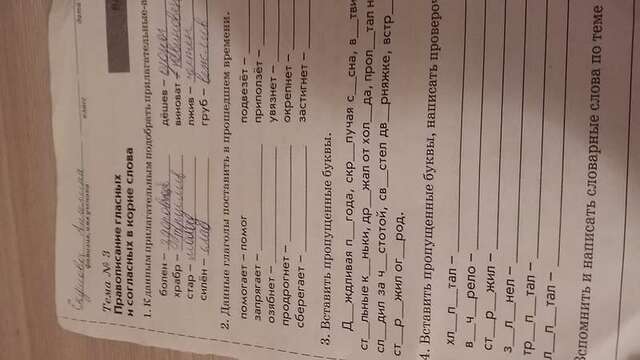 фамилия, имя ученика
класс
дата
Тема № 3
Правописание гласных
и согласных в корне слова
1. К данным прилагательным подобрать прилагательные-
болен –
дёшев –
храбр –
виноват –
стар –
лжив –
силён –
груб –
2. Данные глаголы поставить в прошедшем времени.
помогает – помог
подвезёт –
запрягает –
приползёт –
озябнет –
увязнет –
продрогнет –
окрепнет –
сберегает –
застигнет –
3. Вставить пропущенные буквы.
Д__ждливая п__года, скр__пучая с__сна, в__тв
ст__льные к__ньки, др__жал от хол__да, проп__тал н
сл__дил за ч__стотой, св__стел дв__рняжке, встр
ст__р__жил ог__род.
4. Вставить пропущенные буквы, написать провероч
хл__п__тал –
в__ч__рело –
ст__р__жил –
з__л__нел –
тр__п__тал –
л__п__тал –
Вспомнить и написать словарные слова по теме